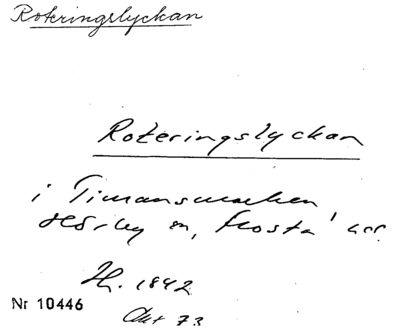 Roteringslyckan
Roteringslyckan
i Timansmarken
Hörby sn, Frosta hd.
H. 1842
Nr 10446
Akt 73